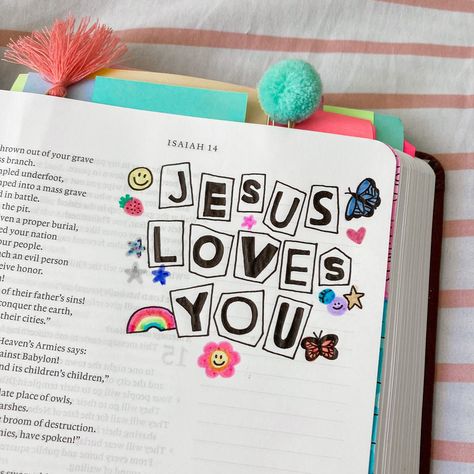 ISAIAH 14
hrown out of your grave
ss branch.
mpled underfoot,
mped into a mass grave
in battle.
the pit.
ven a proper burial,
yed your nation
our people.
ch an evil person
ceive honor.
n!
of their father's sins!
conquer the earth,
their cities."
Heaven's Armies says:
gainst Babylon!
and its children's children,"
late place of owls,
arshes.
broom of destruction.
nies, have spoken!"
JESUS
LOVES
YOU